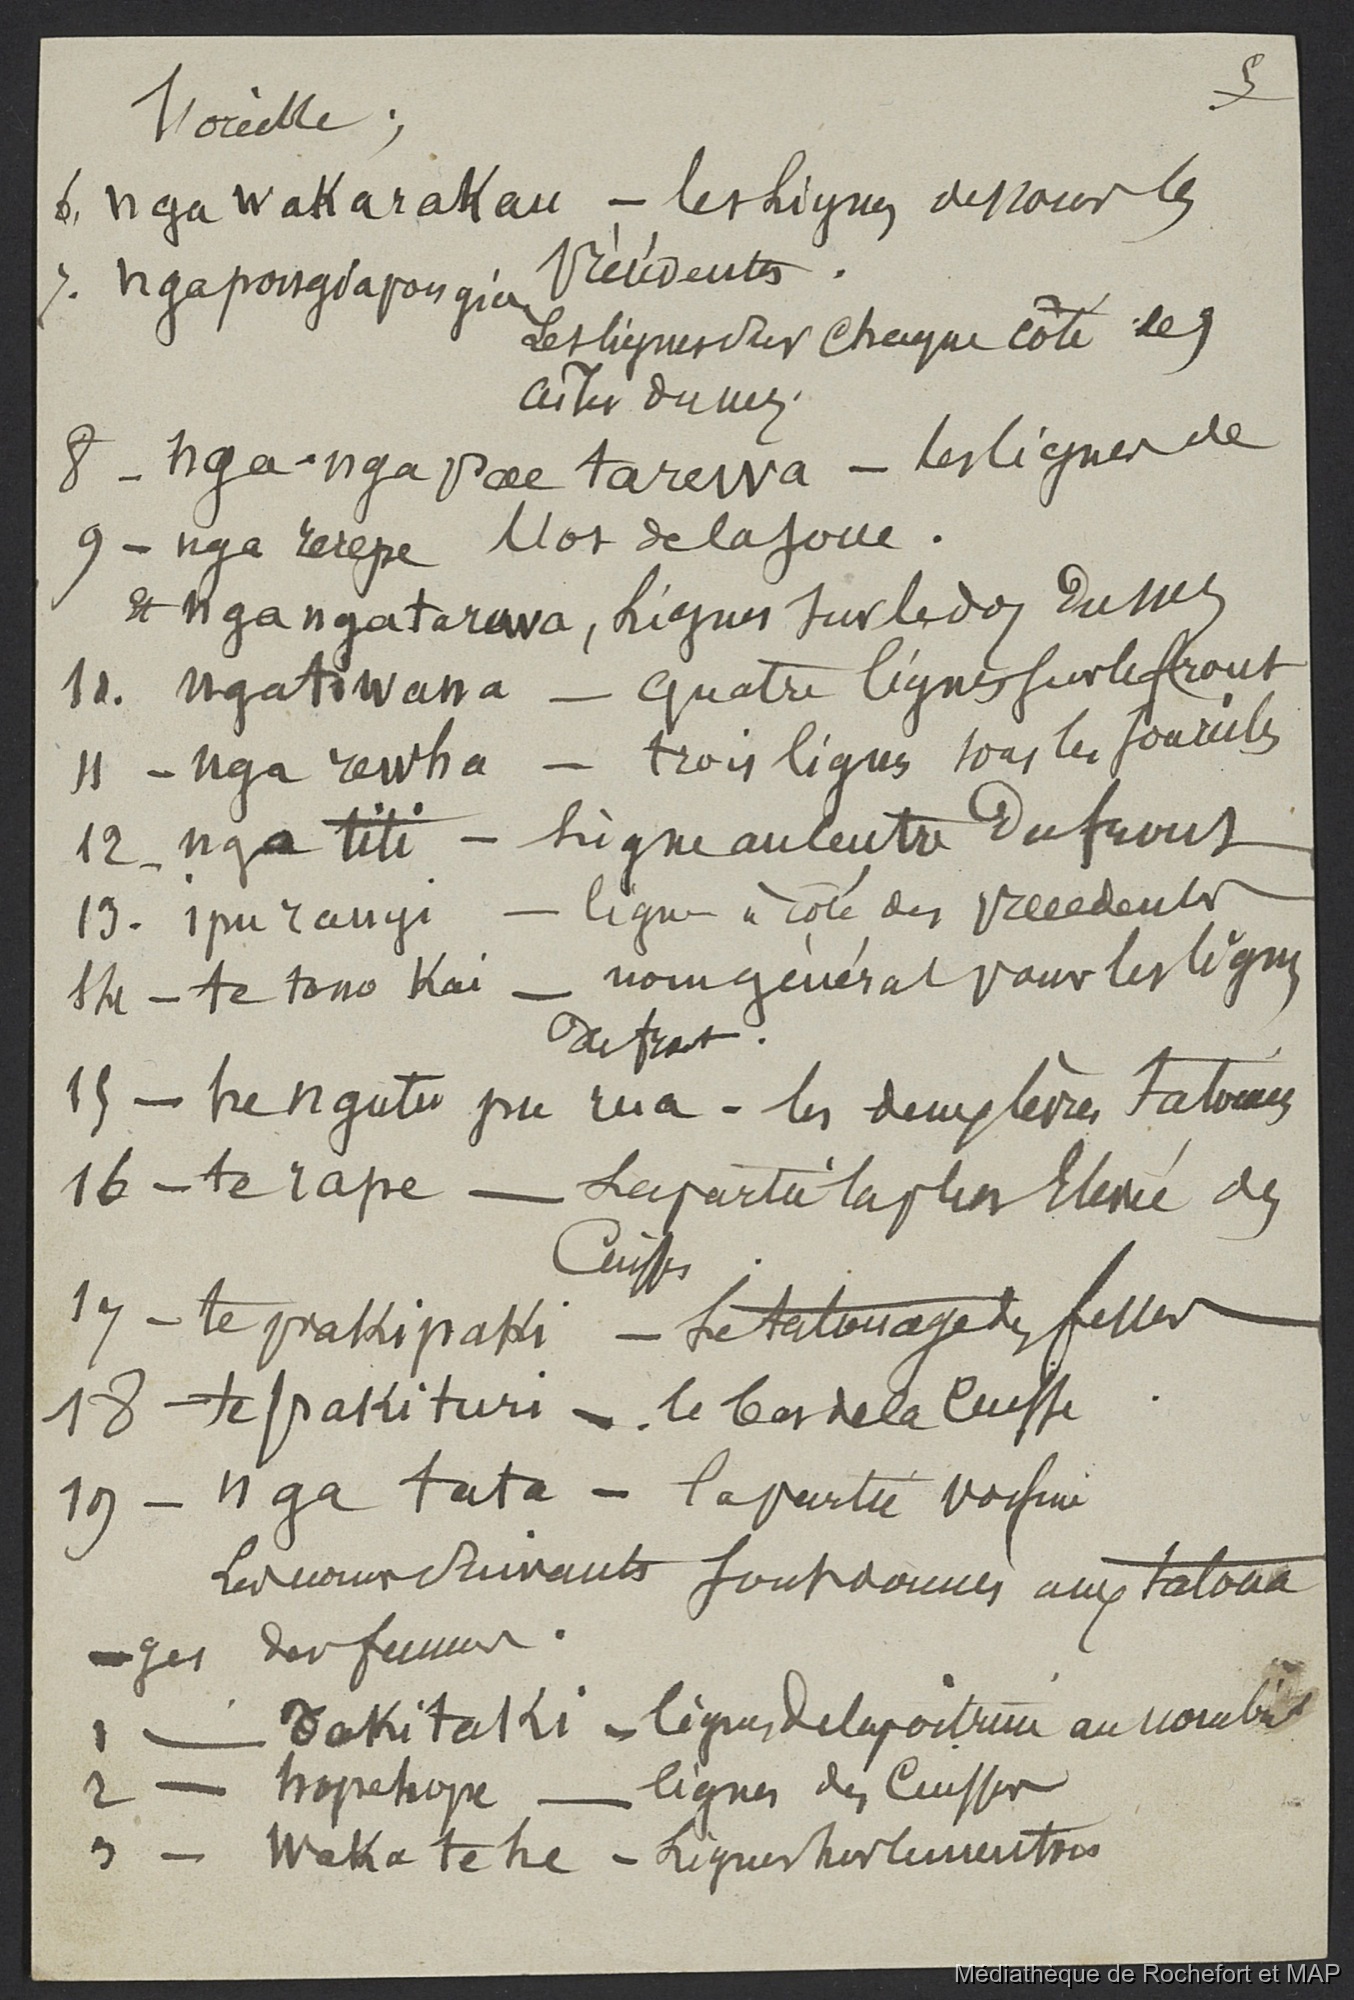 5
l'oreille ;
6. nga wakarakau — les Lignes dessous les
précédentes .
7. ngapongiapongia
Les lignes sur chaque côté des
ailes du nez.
8 - nga-nga pae tarewa — les lignes de
l'os de la joue .
9 - nga rerepe
et nga ngatarewa, Lignes sur le dos du nez
10. nga tiwana — quatre lignes sur le front
11 - nga rewha — trois lignes sous les sourcils
12 - nga titi — Ligne au centre du front
13. ipu rangi — ligne à côté des précédentes
14 - te tono Kai — nom général pour les lignes
du front .
15 — he ngutu pu rua - les deux lèvres tatouées
16 - te rape — La partie la plus Elevée des
Cuisses .
17 - te pakipaki — Le tatouage des fesses
18 - te pakituri - le bas de la Cuisse
19 - nga tata - la partie voisine
Les noms suivants sont donnés aux tatoua
-ges des femmes .
1 — Takitaki - lignes de la poitrine au nombril
2 — hopehope — lignes des Cuisses
3 - Waka tehe - Lignes sur le menton
Médiathèque de Rochefort et MAP